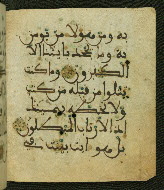 به ومن هؤلاء من يومن
به وما يجحد بايتنا الا
الكفرون وما كنت
تتلوا من قبله من كتب
ولا تخطه بيمينك
اذا لارتاب المبطلون
بل هو ايت بينت في